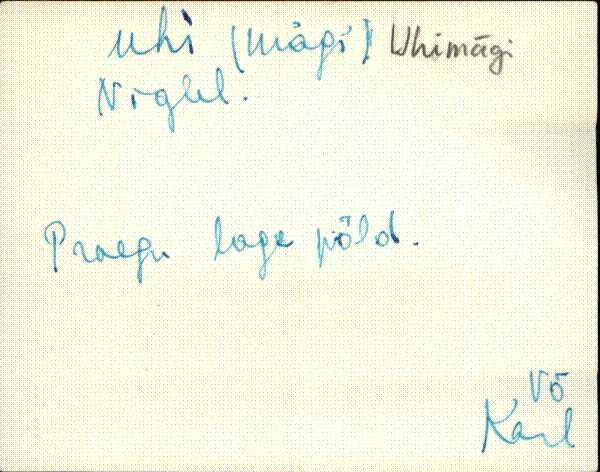 Uhi (mägi) Uhimägi
Nigul.
Praegu lage põld.
Võ
Karl